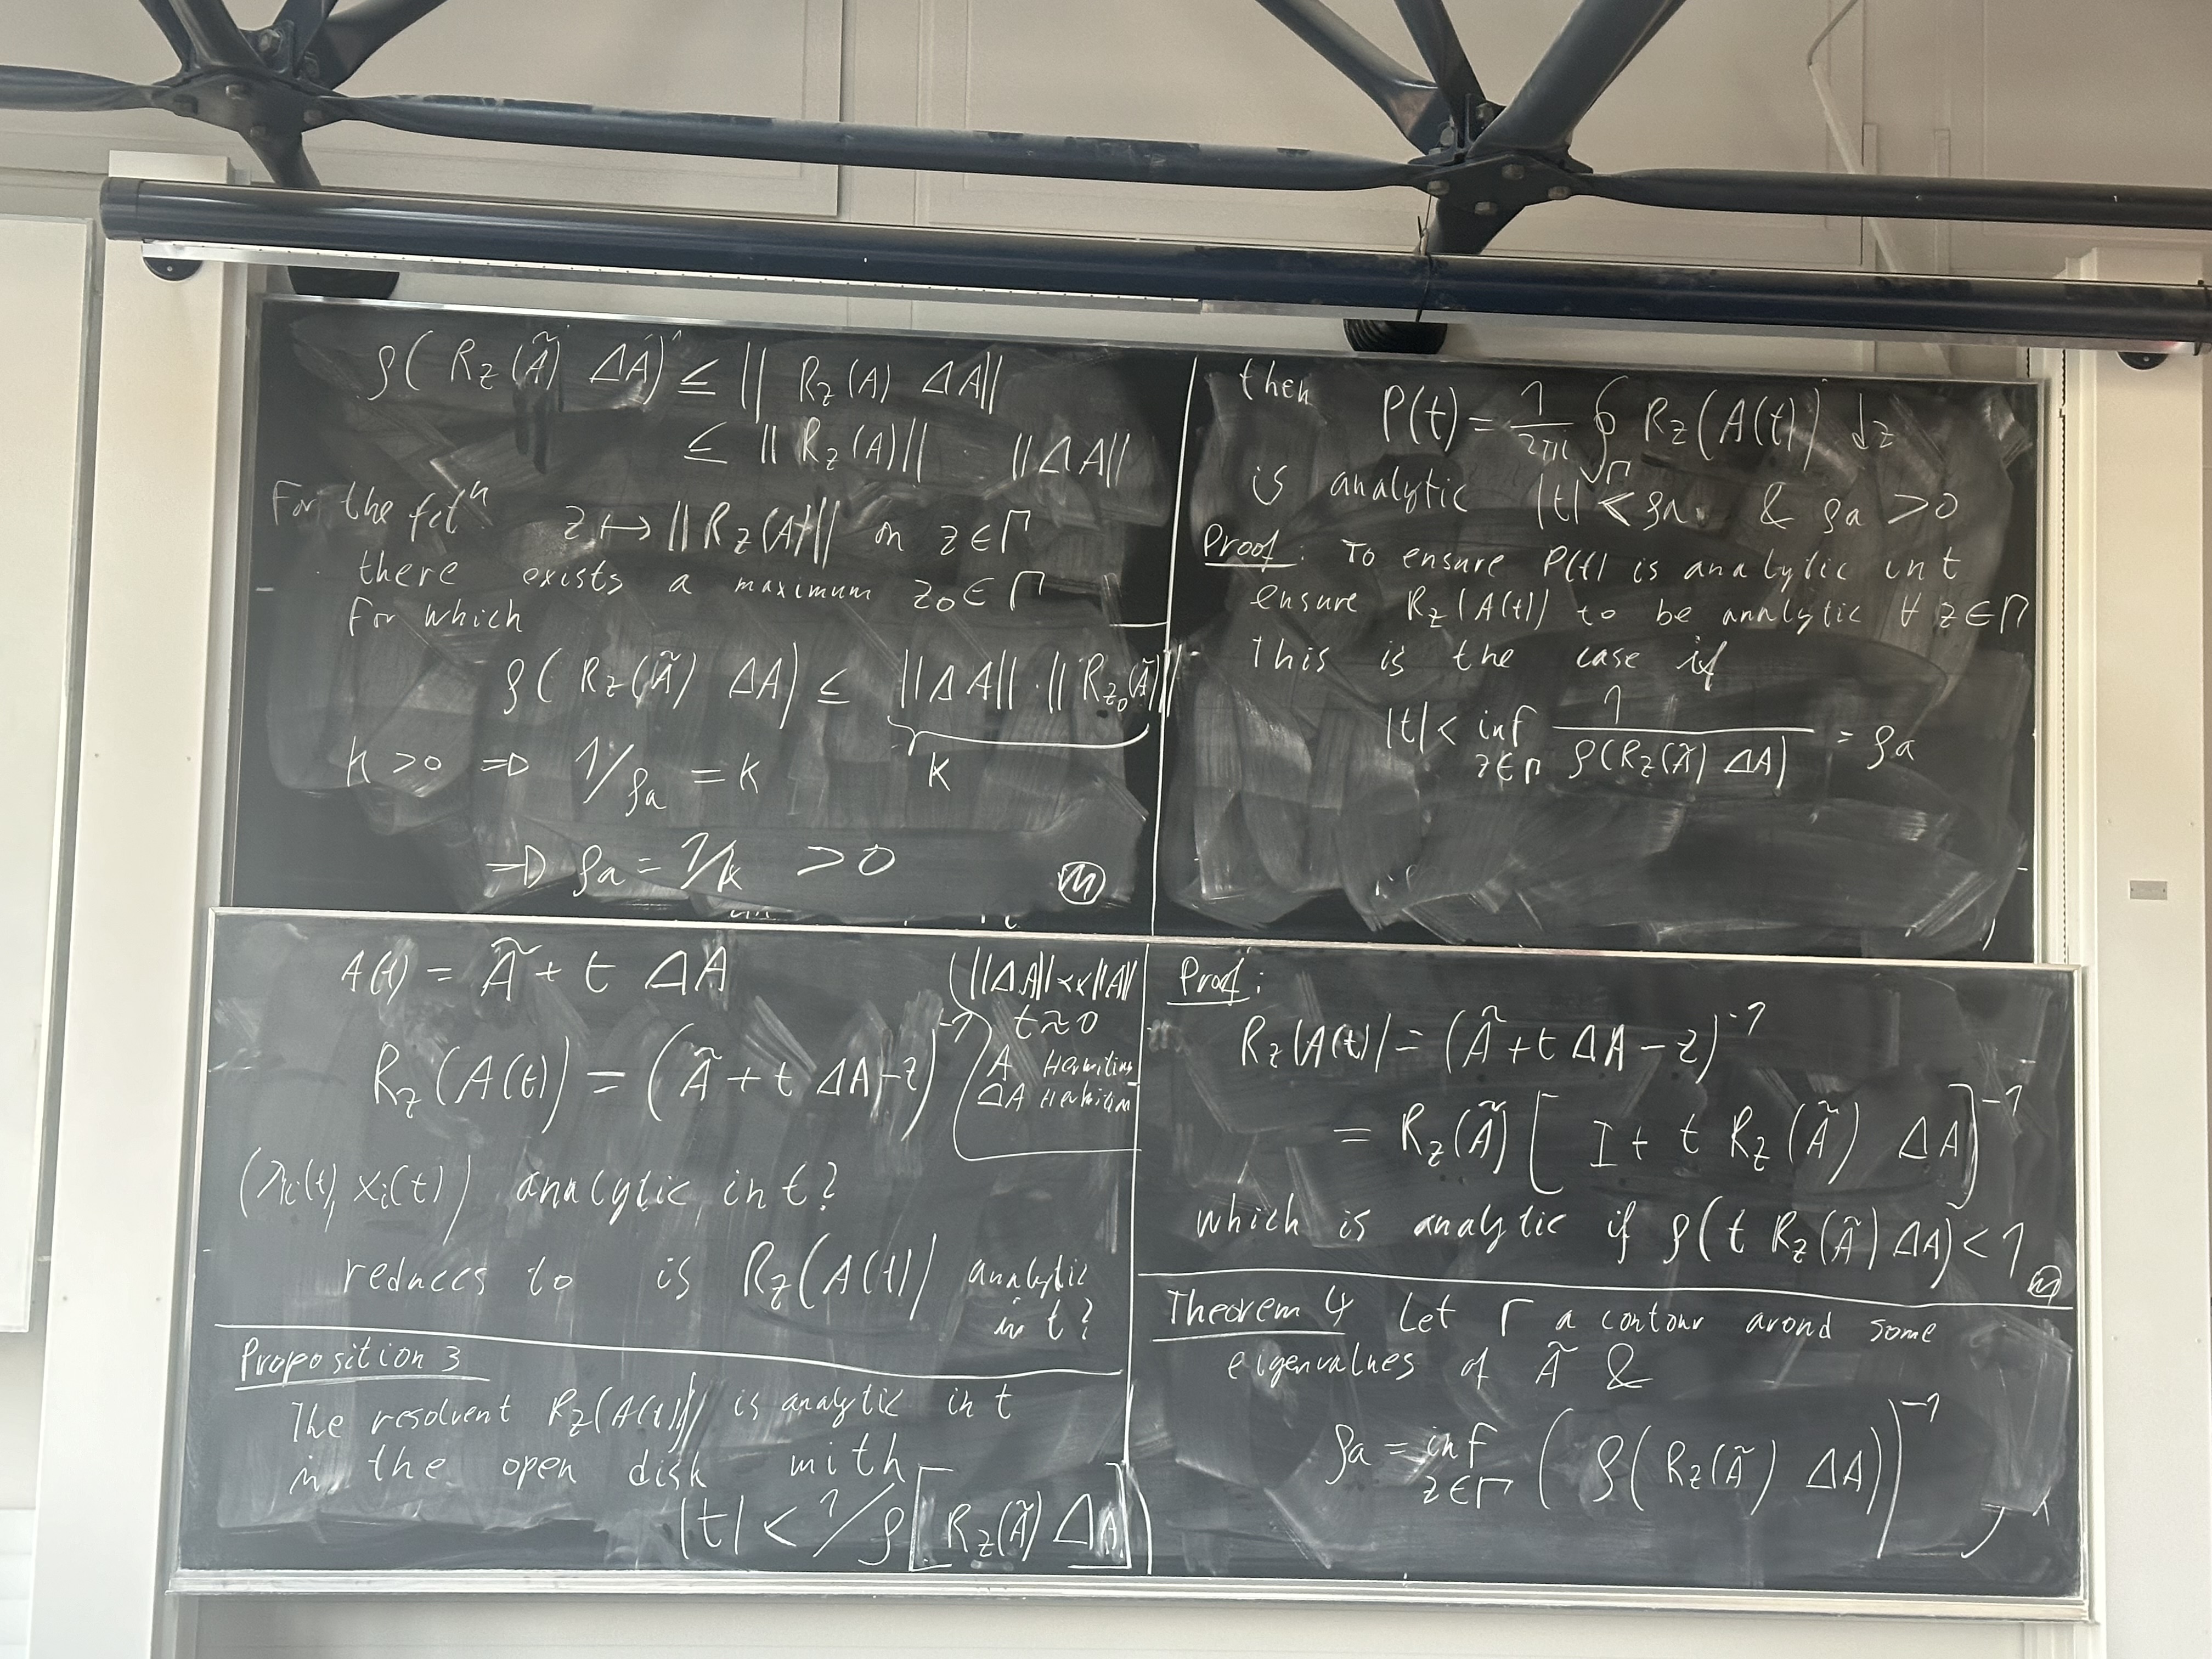 ρ( R_z(Ã) ΔA) ≤ || R_z(A) ΔA||
≤ || R_z(A)|| · ||ΔA||
For the fctⁿ z ↦ ||R_z(A)|| on z∈Γ
there exists a maximum z₀∈Γ
for which
ρ( R_z(Ã) ΔA) ≤ ||ΔA|| · ||R_z₀(Ã)||
K
K >0 ⇒ 1/ρa = K
⇒ ρa = 1/K >0
then P(t) = 1/2πi ∮_Γ R_z(A(t)) dz
is analytic |t| < ρa. & ρa >0
Proof: To ensure P(t) is analytic in t
ensure R_z(A(t)) to be analytic ∀ z∈Γ
This is the case if
|t| < inf_{z∈Γ} 1/ρ(R_z(Ã) ΔA) = ρa
A(t) = Ã + t ΔA
R_z(A(t)) = (Ã + t ΔA - z)⁻¹
(||ΔA|| << ||A||
t ≈ 0
A Hermitian
ΔA Hermitian
(λi(t), xi(t)) analytic in t?
reduces to is R_z(A(t)) analytic
in t?
Proposition 3
The resolvent R_z(A(t)) is analytic in t
in the open disk with
|t| < 1/ρ[R_z(Ã) ΔA]
Proof:
R_z(A(t)) = (Ã + t ΔA - z)⁻¹
= R_z(Ã) [ I + t R_z(Ã) ΔA]⁻¹
which is analytic if ρ(t R_z(Ã) ΔA) < 1
Theorem 4 Let Γ a contour arond some
eigenvalues of Ã &
ρa = inf_{z∈Γ} ( ρ( R_z(Ã) ΔA))⁻¹